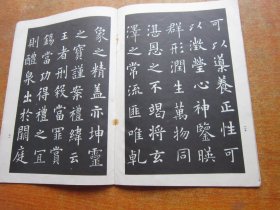 可以導養正性可
以澂瑩心神鑒暎
群形潤生萬物同
湛恩之不竭將玄
澤之常流匪唯乾
象之精蓋亦坤靈
之寶謹案禮緯云
王者刑殺當罪賞
錫當功得禮之宜
則醴泉出於闕庭